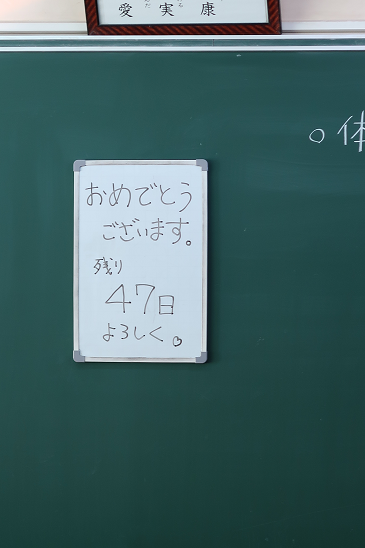 愛 実 康
おめでとう
ございます。
残り
47日
よろしく。
○体